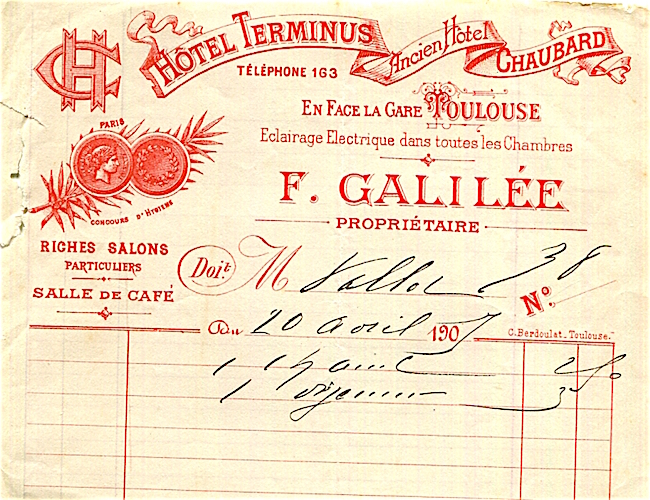 HC
HÔTEL TERMINUS
Ancien Hôtel
CHAUBARD
TÉLÉPHONE 163
EN FACE LA GARE TOULOUSE
Eclairage Electrique dans toutes les Chambres
PARIS
CONCOURS D'HYGIENE
F. GALILÉE
PROPRIÉTAIRE
RICHES SALONS
PARTICULIERS
SALLE DE CAFÉ
Doit M
38
N°
Du 20 avril 1907
C. Berdoulat _ Toulouse.
1
1 déjeuner 3